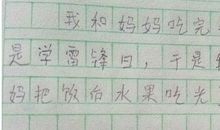 我和妈妈吃完
是学雷锋日，于是
妈把饭后水果吃光